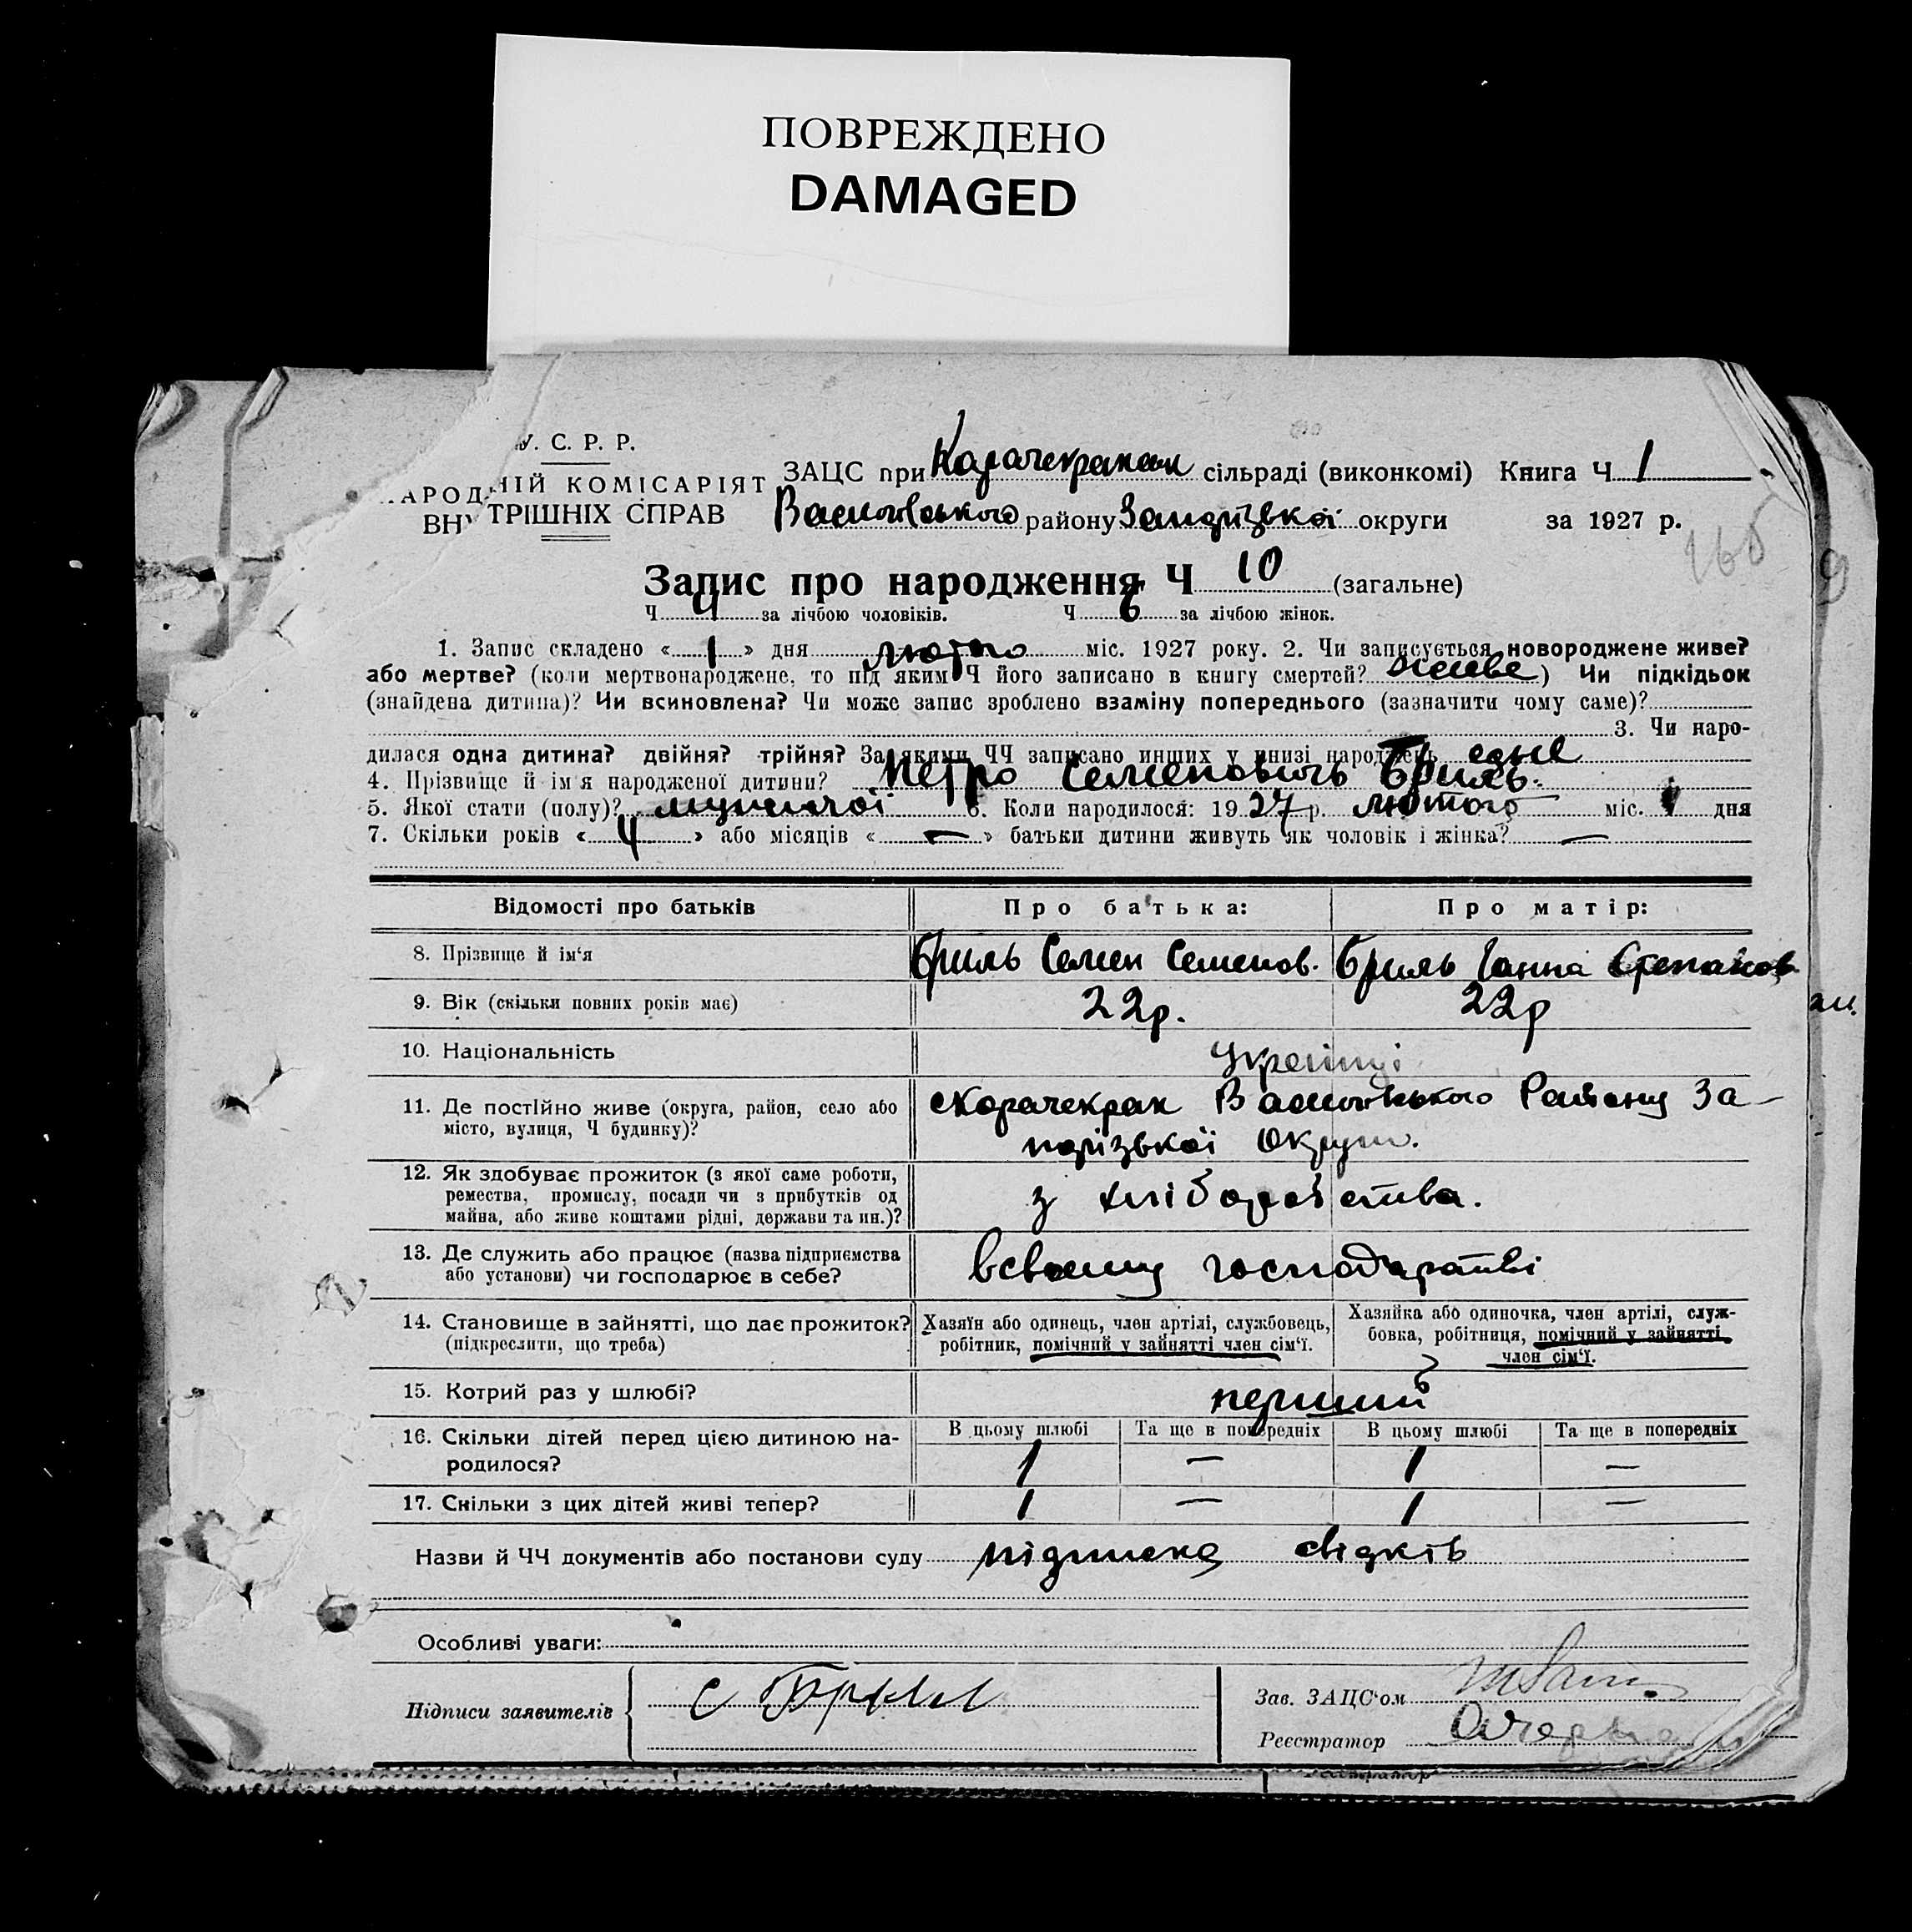 ПОВРЕЖДЕНО
DAMAGED
У. С. Р. Р.
НАРОДНІЙ КОМІСАРІЯТ
ВНУТРІШНІХ СПРАВ
ЗАЦС при сільраді (виконкомі) Книга Ч 1
Василівського району Запорізької округи за 1927 р.
Запис про народження Ч 10 (загальне)
Ч 4 за лічбою чоловіків. Ч 6 за лічбою жінок.
1. Запис складено « 1 » дня лютого міс. 1927 року. 2. Чи записується новороджене живе?
або мертве? (коли мертвонароджене, то під яким Ч його записано в книгу смертей? живе ) Чи підкідьок
(знайдена дитина)? Чи всиновлена? Чи може запис зроблено взаміну попереднього (зазначити чому саме)?
3. Чи наро-
дилася одна дитина? двійня? трійня? За якими ЧЧ записано инших у книзі народжень одне
4. Прізвище й ім'я народженої дитини? Петро Семенович Бриль.
5. Якої стати (полу)? мужичої 6. Коли народилося: 1927 р. лютого міс. 1 дня
7. Скільки років « 4 » або місяців « — » батьки дитини живуть як чоловік і жінка? —
Відомості про батьків Про батька: Про матір:
8. Прізвище й ім'я Бриль Семен Семенов. Бриль Ганна Степанов
9. Вік (скільки повних років має) 22р. 22р
10. Національність Українці
11. Де постійно живе (округа, район, село або місто, вулиця, Ч будинку)? с Карачекрак Василівського Району За-
порізької Округи.
12. Як здобуває прожиток (з якої саме роботи,
ремества, промислу, посади чи з прибутків од
майна, або живе коштами рідні, держави та ин.)? з хліборобства.
13. Де служить або працює (назва підприємства
або установи) чи господарює в себе? всвоему господарстві
14. Становище в зайнятті, що дає прожиток?
(підкреслити, що треба)
Хазяїн або одинець, член артілі, службовець,
робітник, помічний у зайнятті член сім'ї.
Хазяйка або одиночка, член артілі, служ-
бовка, робітниця, помічний у зайнятті
член сім'ї.
15. Котрий раз у шлюбі? перший
16. Скільки дітей перед цією дитиною на-
родилося?
В цьому шлюбі Та ще в попередніх В цьому шлюбі Та ще в попередніх
1 — 1 —
17. Скільки з цих дітей живі тепер? 1 — 1 —
Назви й ЧЧ документів або постанови суду підписка свідків
Особливі уваги:
Підписи заявителів С Брил
Зав. ЗАЦС'ом
Реєстратор